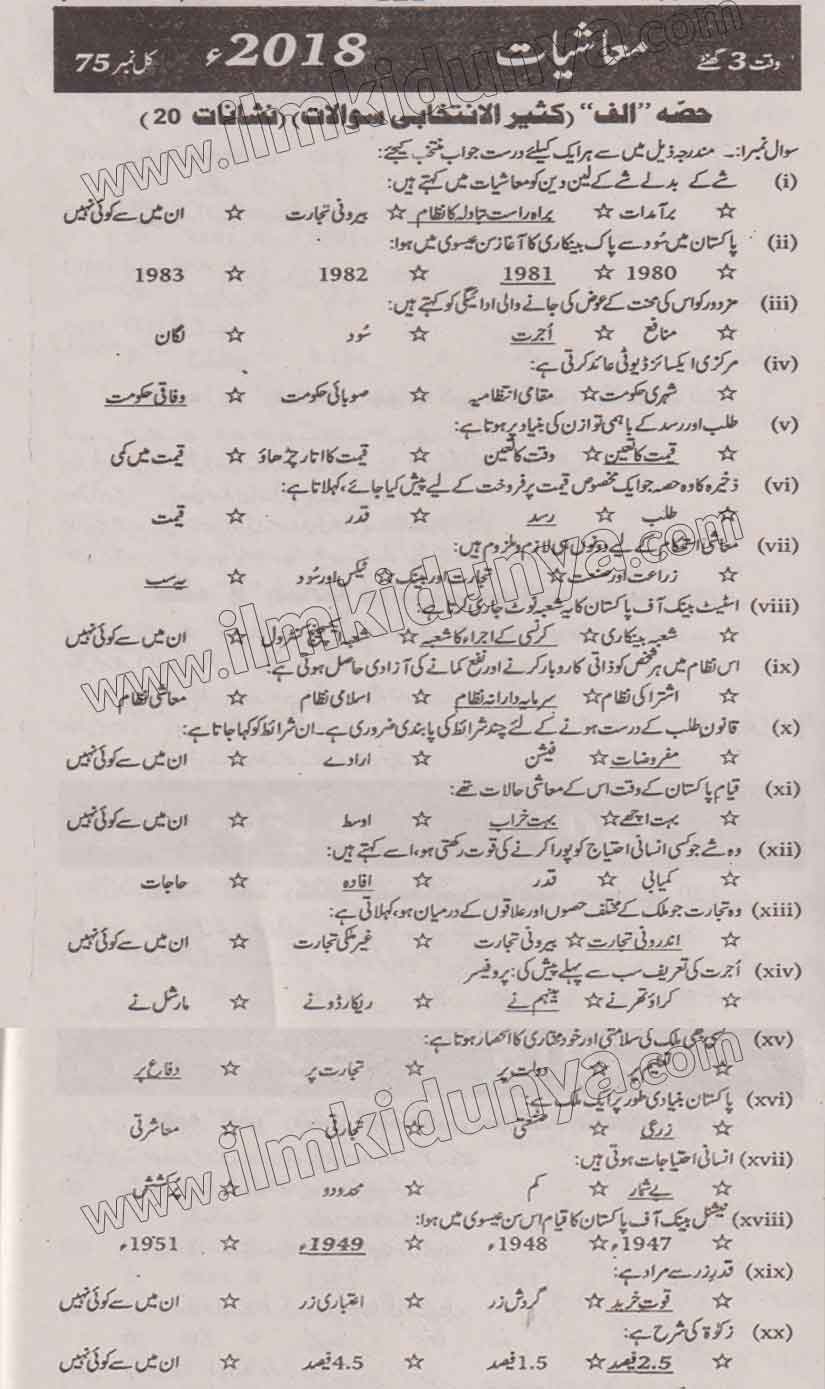 وقت 3 گھنٹے معاشیات 2018ء کل نمبر 75
حصّہ "الف" (کثیر الانتخابی سوالات) (نشانات 20)
سوال نمبر1:۔ مندرجہ ذیل میں سے ہر ایک کیلئے درست جواب منتخب کیجئے:
(i) شے کے بدلے شے کے لین دین کو معاشیات میں کہتے ہیں:
☆ برآمدات ☆ براہ راست تبادلہ کا نظام ☆ بیرونی تجارت ☆ ان میں سے کوئی نہیں
(ii) پاکستان میں سُود سے پاک بینکاری کا آغاز سن عیسوی میں ہوا:
☆ 1980 ☆ 1981 ☆ 1982 ☆ 1983
(iii) مزدور کو اس کی محنت کے عوض کی جانے والی ادائیگی کو کہتے ہیں:
☆ منافع ☆ اُجرت ☆ سُود ☆ لگان
(iv) مرکزی ایکسائز ڈیوٹی عائد کرتی ہے:
☆ شہری حکومت ☆ مقامی انتظامیہ ☆ صوبائی حکومت ☆ وفاقی حکومت
(v) طلب اور رسد کے باہمی توازن کی بنیاد پر ہوتا ہے:
☆ قیمت کا تعین ☆ وقت کا تعین ☆ قیمت کا اتار چڑھاؤ ☆ قیمت میں کمی
(vi) ذخیرہ کا وہ حصہ جو ایک مخصوص قیمت پر فروخت کے لیے پیش کیا جائے، کہلاتا ہے:
☆ طلب ☆ رسد ☆ قدر ☆ قیمت
(vii) معاشی استحکام کے لیے دونوں ہی لازم و ملزوم ہیں:
☆ زراعت اور صنعت ☆ تجارت اور بینک ☆ ٹیکس اور سُود ☆ یہ سب
(viii) اسٹیٹ بینک آف پاکستان کا یہ شعبہ نوٹ جاری کرتا ہے:
☆ شعبہ بینکاری ☆ کرنسی کے اجراء کا شعبہ ☆ شعبہ ایکسچینج کنٹرول ☆ ان میں سے کوئی نہیں
(ix) اس نظام میں ہر شخص کو ذاتی کاروبار کرنے اور نفع کمانے کی آزادی حاصل ہوتی ہے:
☆ اشتراکی نظام ☆ سرمایہ دارانہ نظام ☆ اسلامی نظام ☆ معاشی نظام
(x) قانون طلب کے درست ہونے کے لئے چند شرائط کی پابندی ضروری ہے۔ ان شرائط کو کہا جاتا ہے:
☆ مفروضات ☆ فیشن ☆ ارادے ☆ ان میں سے کوئی نہیں
(xi) قیام پاکستان کے وقت اس کے معاشی حالات تھے:
☆ بہت اچھے ☆ بہت خراب ☆ اوسط ☆ ان میں سے کوئی نہیں
(xii) وہ شے جو کسی انسانی احتیاج کو پورا کرنے کی قوت رکھتی ہو، اسے کہتے ہیں:
☆ کمیابی ☆ قدر ☆ افادہ ☆ حاجات
(xiii) وہ تجارت جو ملک کے مختلف حصوں اور علاقوں کے درمیان ہو، کہلاتی ہے:
☆ اندرونی تجارت ☆ بیرونی تجارت ☆ غیر ملکی تجارت ☆ ان میں سے کوئی نہیں
(xiv) اُجرت کی تعریف سب سے پہلے پیش کی: پروفیسر
☆ کراؤتھر نے ☆ بینہم نے ☆ ریکارڈو نے ☆ مارشل نے
(xv) کسی بھی ملک کی سلامتی اور خود مختاری کا انحصار ہوتا ہے:
☆ تعلیم پر ☆ دولت پر ☆ تجارت پر ☆ دفاع پر
(xvi) پاکستان بنیادی طور پر ایک ملک ہے:
☆ زرعی ☆ صنعتی ☆ تجارتی ☆ معاشرتی
(xvii) انسانی احتیاجات ہوتی ہیں:
☆ بے شمار ☆ کم ☆ محدودو ☆ پُرکشش
(xviii) نیشنل بینک آف پاکستان کا قیام اس سن عیسوی میں ہوا:
☆ 1947ء ☆ 1948ء ☆ 1949ء ☆ 1951ء
(xix) قدرِ زر سے مراد ہے:
☆ قوت خرید ☆ گردش زر ☆ اعتباری زر ☆ ان میں سے کوئی نہیں
(xx) زکوٰۃ کی شرح ہے:
☆ 2.5 فیصد ☆ 1.5 فیصد ☆ 4.5 فیصد ☆ ان میں سے کوئی نہیں
www.ilmkidunya.com
www.ilmkidunya.com
www.ilmkidunya.com